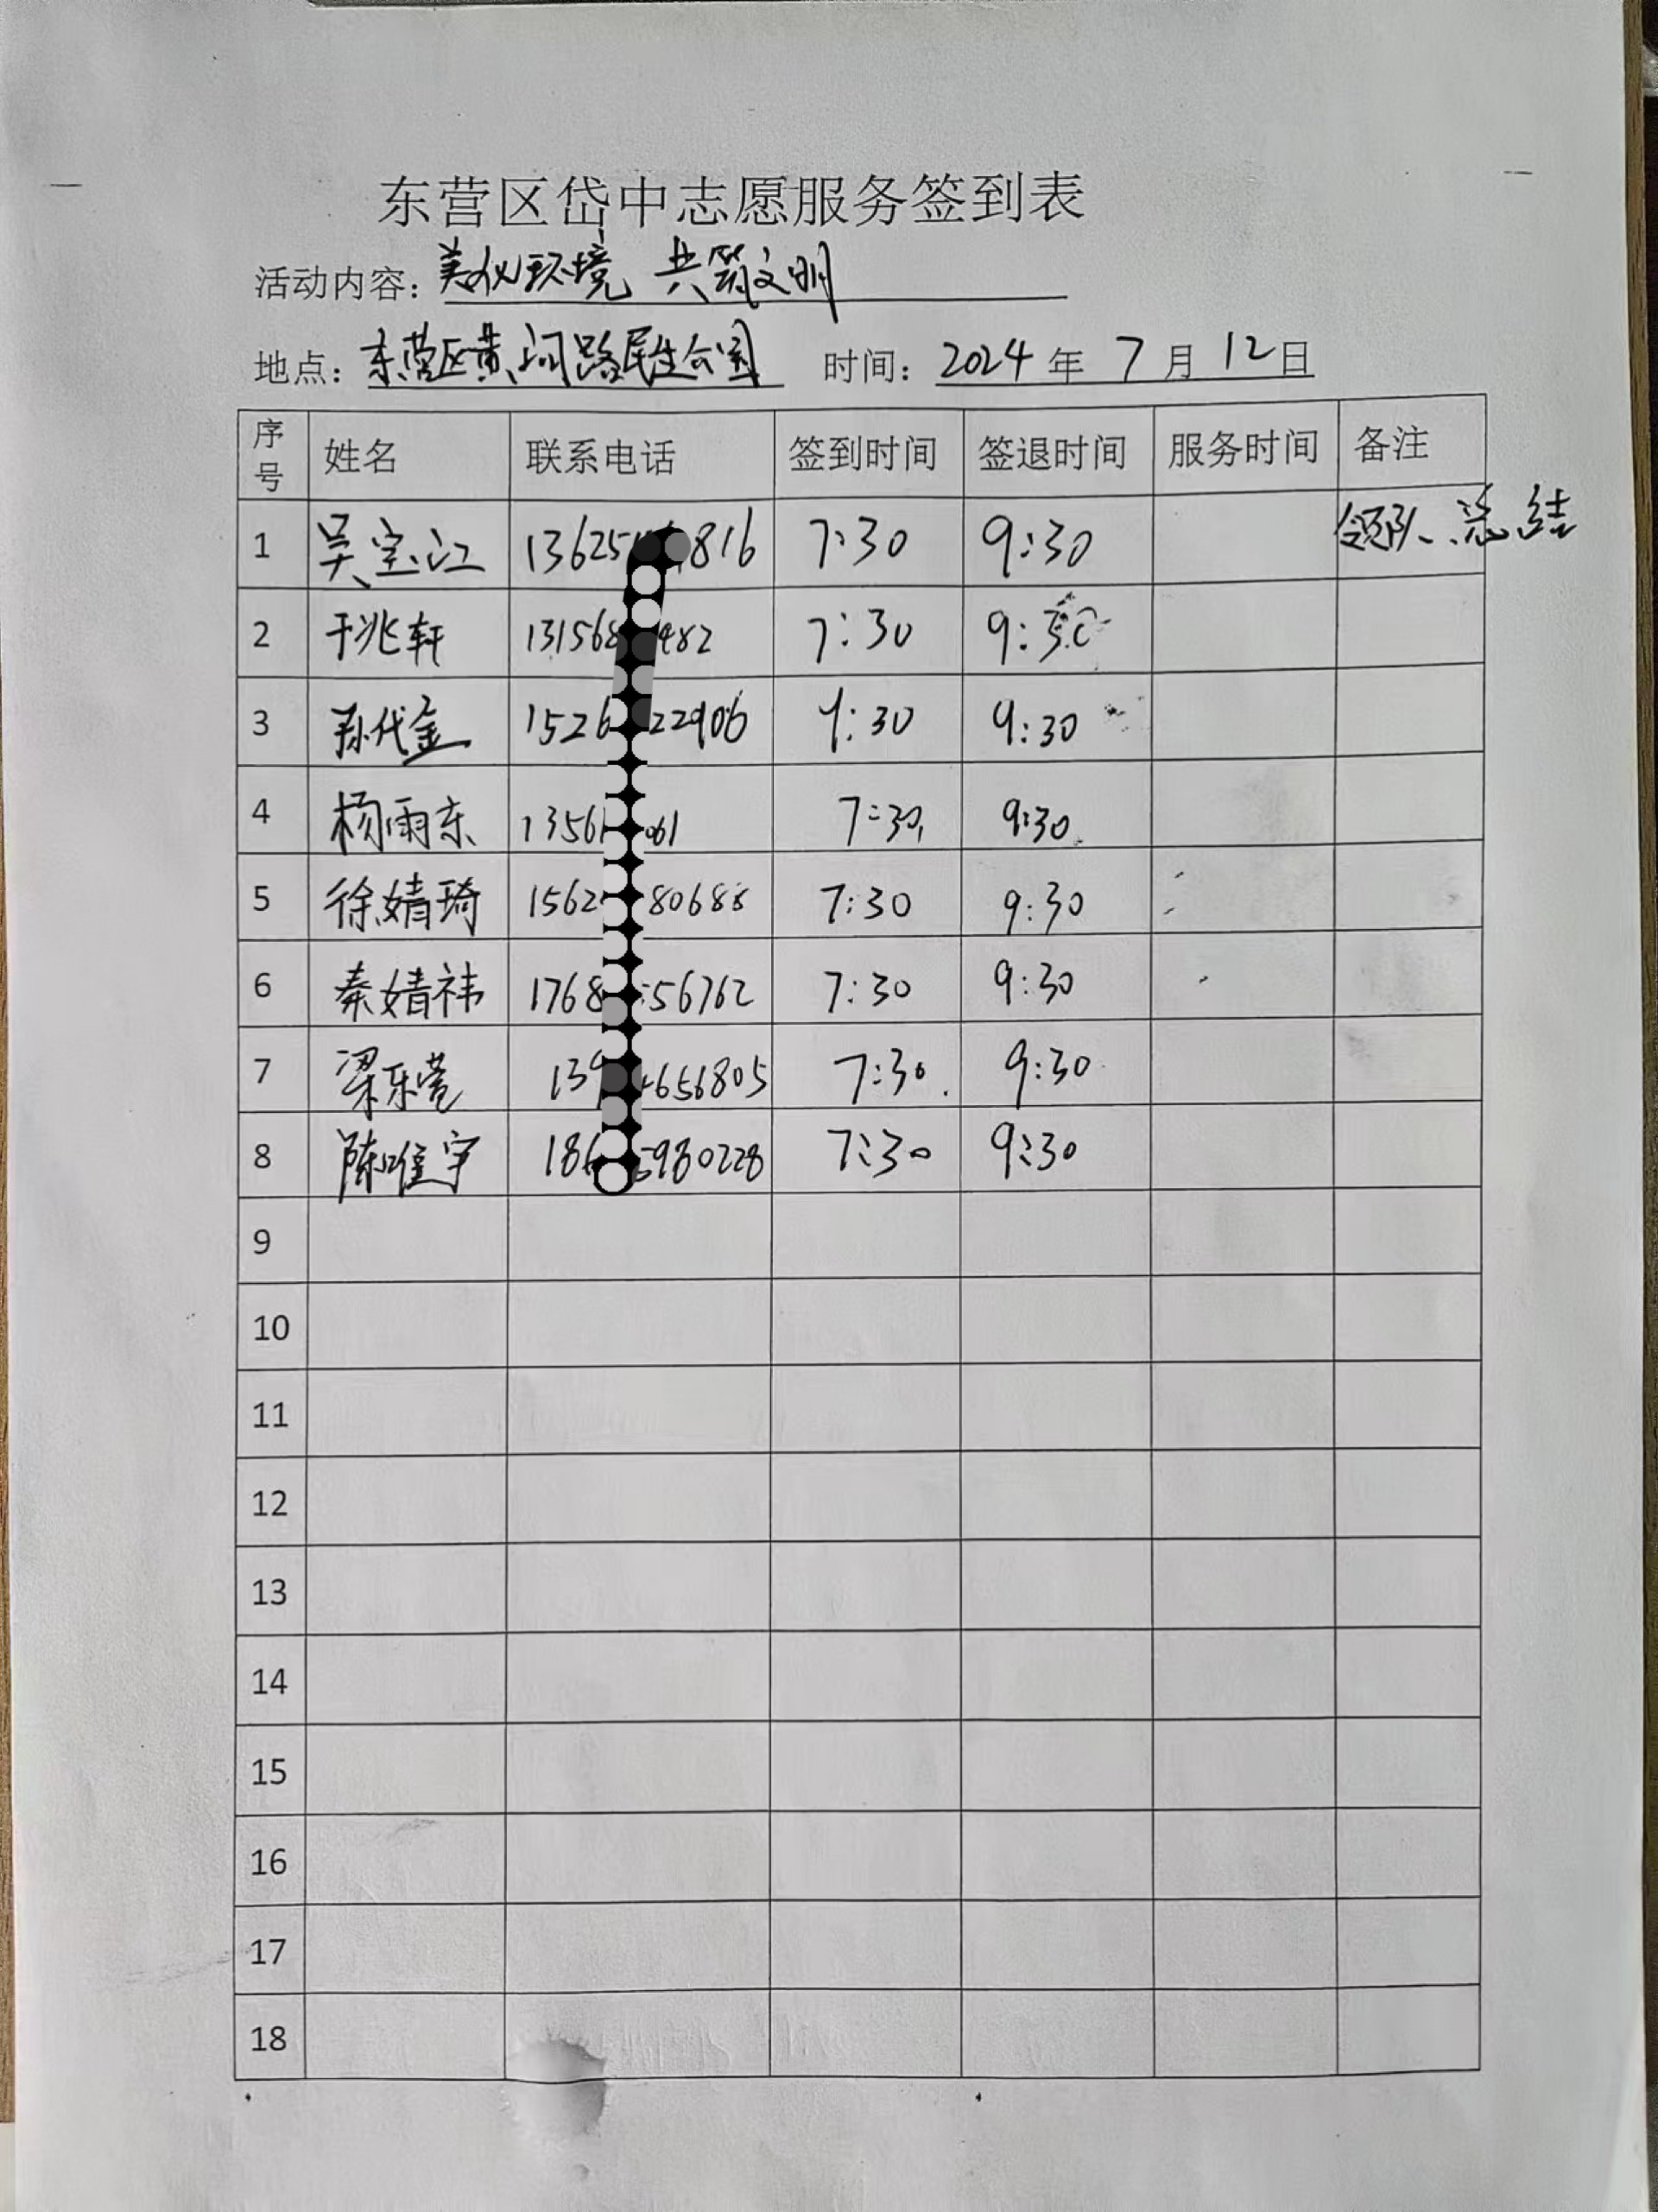 东营区岱中志愿服务签到表
活动内容：美化环境 共筑文明
地点：东营区黄河路民生公园 时间：2024年7月12日
序号 姓名 联系电话 签到时间 签退时间 服务时间 备注
1 吴宝江 13625 816 7:30 9:30 领队、总结
2 于兆轩 131568 482 7:30 9:30
3 孙代金 1526 22906 7:30 9:30
4 杨雨东 13561 061 7:30 9:30
5 徐婧琦 1562 80688 7:30 9:30
6 秦婧祎 1768 56762 7:30 9:30
7 梁乐萱 139 656805 7:30 9:30
8 陈唯宇 186 5980228 7:30 9:30
9
10
11
12
13
14
15
16
17
18